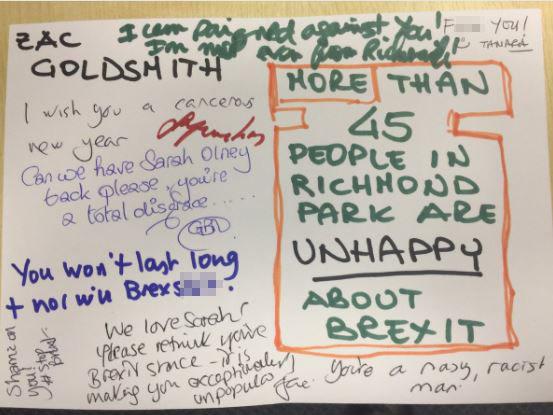 ZAC
GOLDSMITH
I campaigned against you!
I'm not even from Richmond!
F YOU!
TAMARA
I wish you a cancerous
new year
Can we have Sarah Olney
back please, you're
a total disgrace......
You won't last long
+ nor will Brexs
Shame on
you!
We love Sarah!
Please rethink you're
Brexit stance - it is
making you exceptionally
unpopular
MORE THAN
45
PEOPLE IN
RICHMOND
PARK ARE
UNHAPPY
ABOUT
BREXIT
You're a nasy, racist
man.